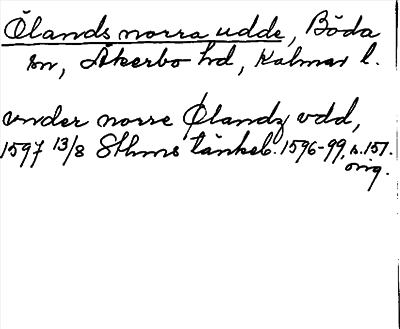 Ölands norra udde, Böda
sn, Åkerbo hd, Kalmar l.
vnder norre Ølandz vdd,
1597 13/8 Sthms tänkeb. 1596-99, s. 157.
orig.